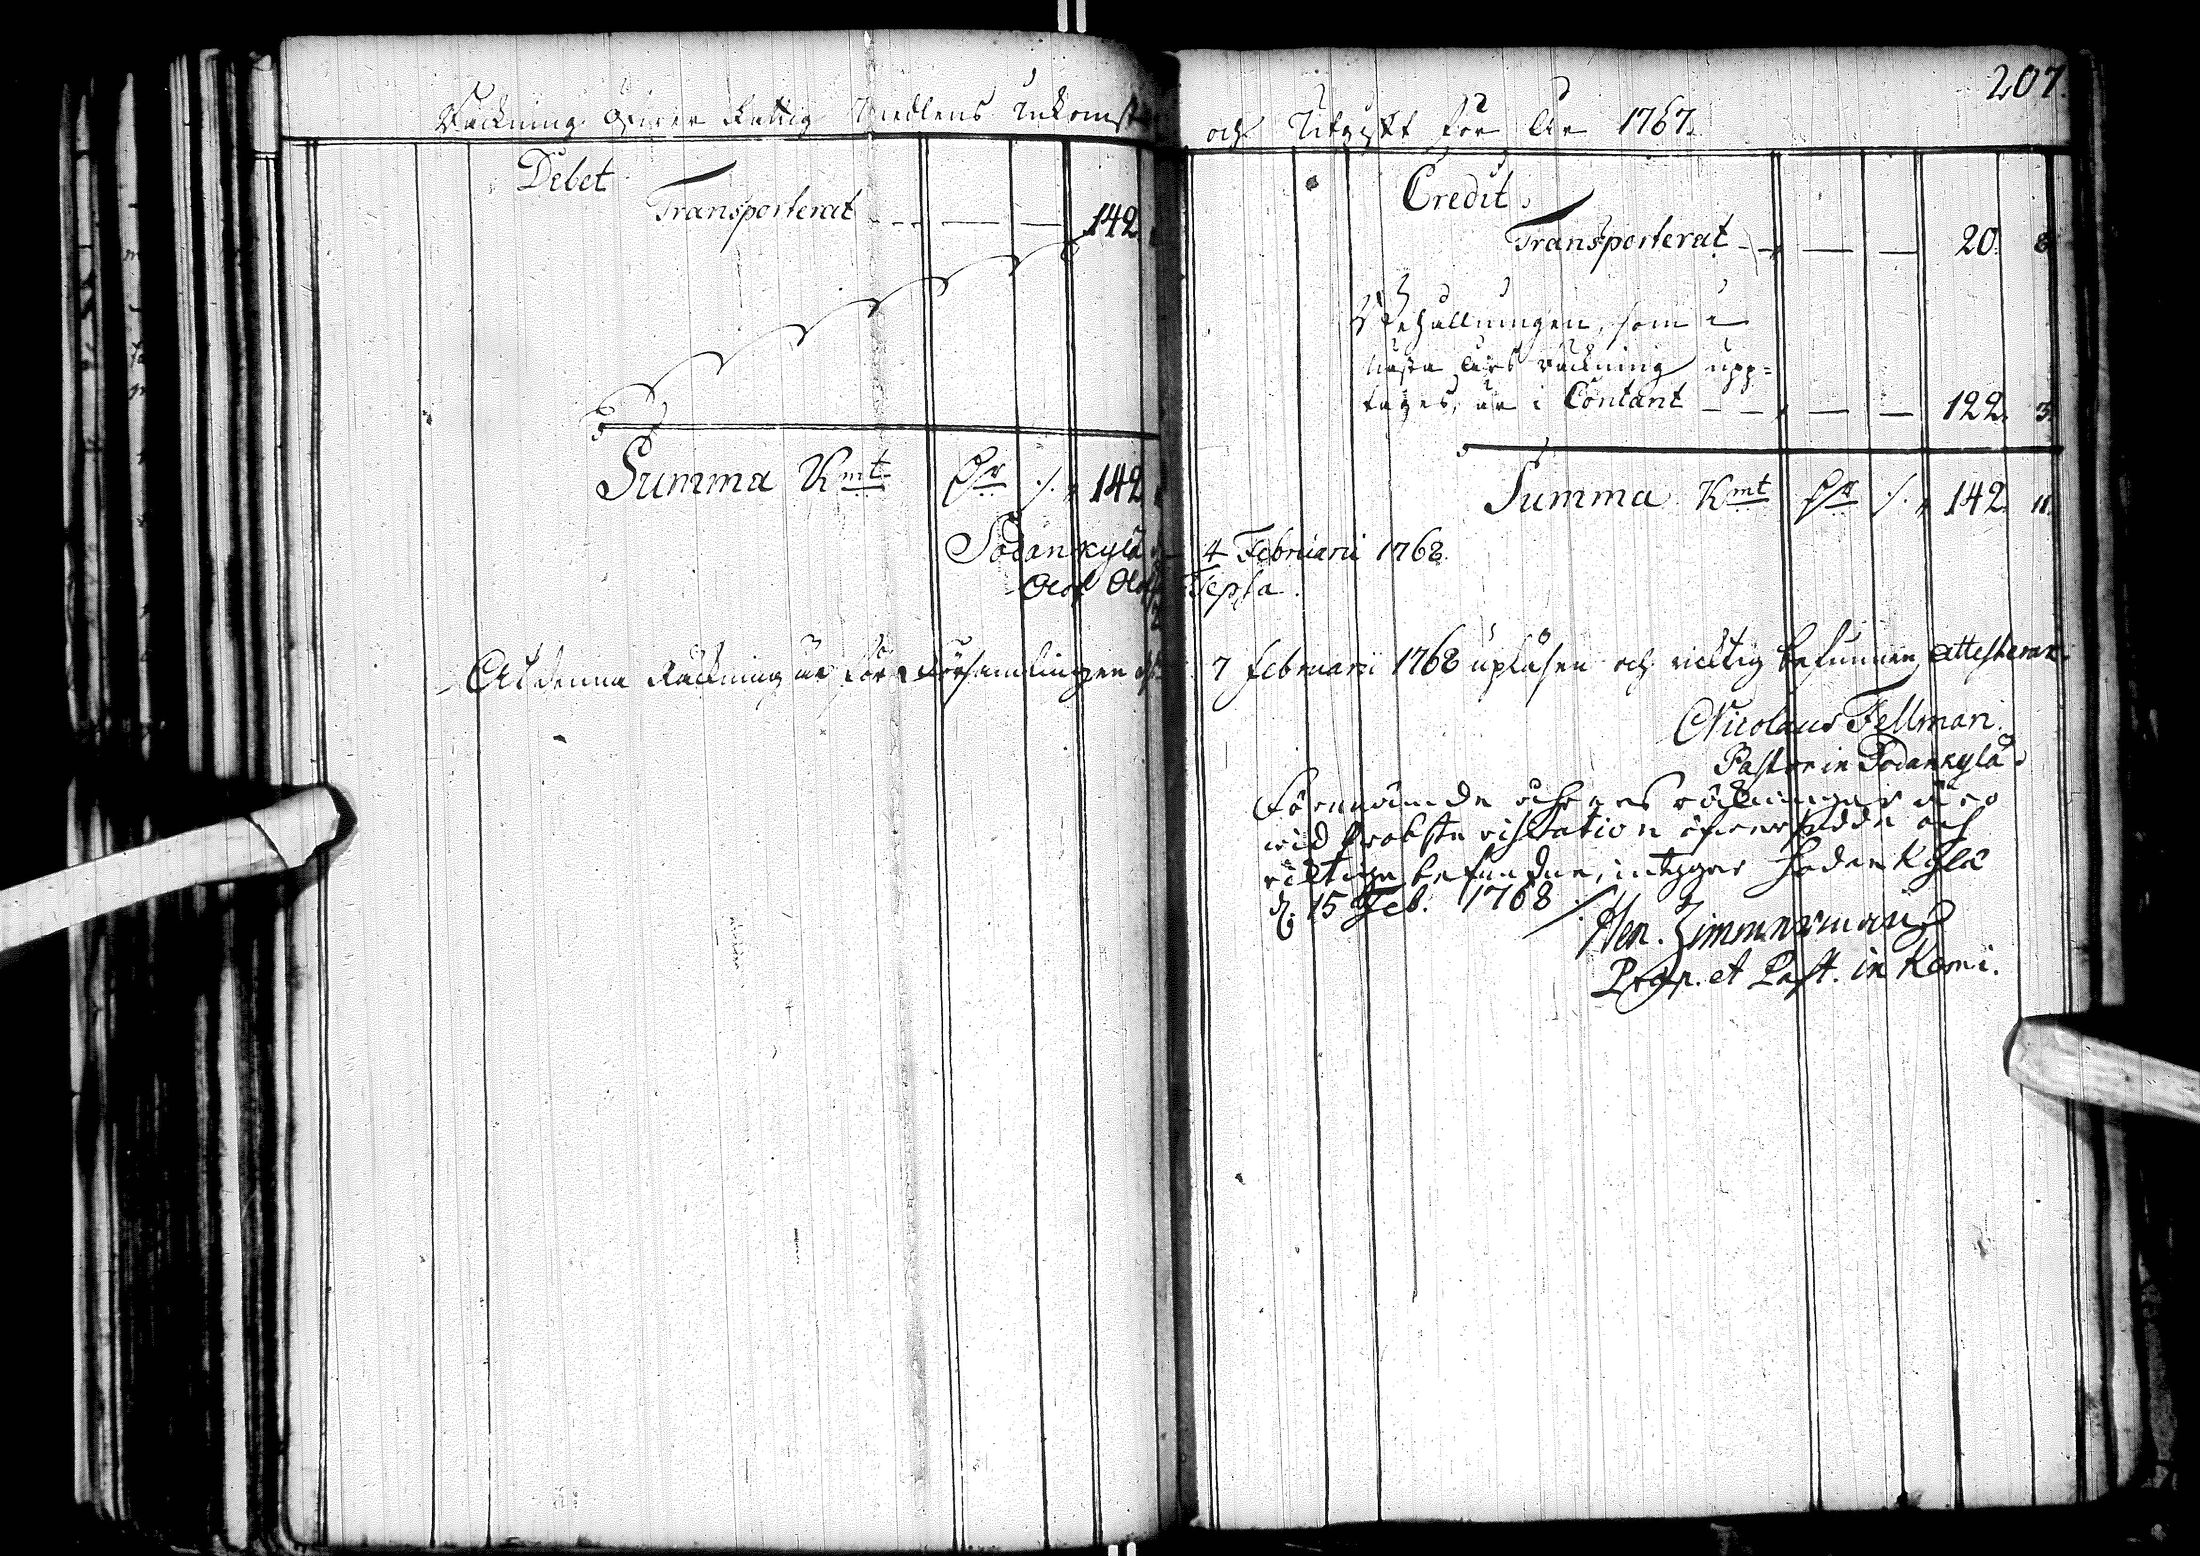 207.
Räckning öfwer Fattig Medlens Inkomst
och Utgift för År 1767.
Debet
Transporterat - - — — — 142.
Summa Kmt Dr ./. " 142
Credit.
Transporterat - - — — 20. 8.
Behållningen, som i
nästa Års räckning upp=
tages, är i Contant - - — — 122. 3.
Summa Kmt Dr ./. " 142. 11.
Sodankylä 4 Februarii 1768.
Olof Olofs Tepsa.
At denna Räckning är för Församlingen d. 7 Februarii 1768 upläsen och richtig befunnen, attesterar.
Nicolaus Fellman.
Pastor in Sodankylä.
Förenämde åhrs räkningar äro
wid Probste visitation öfwersedde och
riktige befundne, intygar Sodankylä
d. 15 Feb. 1768 ./.
Hen. Zimmerman
Præp. et Past. in Kemi.